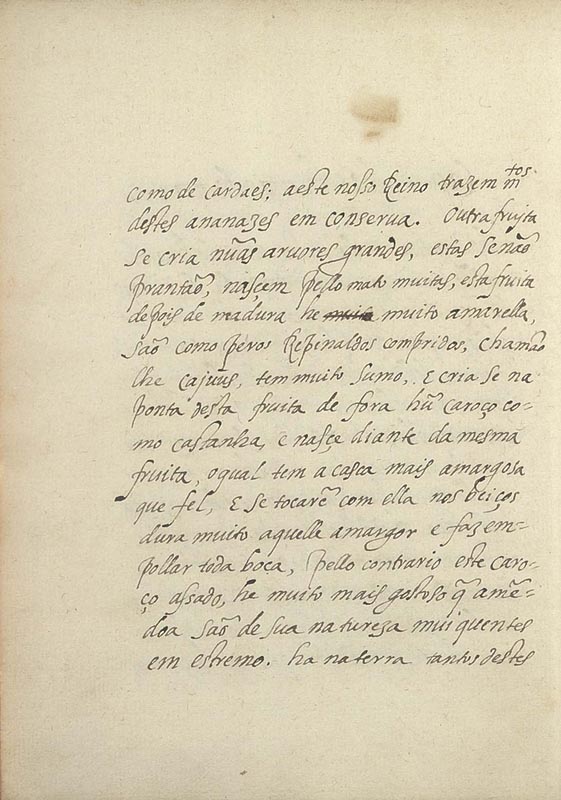 como de cardaes; aeste nosso Reino trazem mtos.
destes ananazes em conserva. Outra fruita
se cria nũas arvores grandes, estas senão
prantão, nascem pello mato muitas, esta fruita
depois de madura he muito amarella,
são como peros Repinaldos compridos, chamão
lhe cajuũs, tem muito sumo, E cria se na
ponta desta fruita de fora hũ caroço co-
mo castanha, e nasçe diante da mesma
fruita, oqual tem a casca mais amargosa
que fel, E se tocarẽ com ella nos beiços
dura muito aquelle amargor e faz em=
pollar toda boca, pello contrario este caro-
ço assado, he muito mais gostoso q̃ amẽ=
doa são de sua natureza mui quentes
em estremo. ha na terra tantos destes